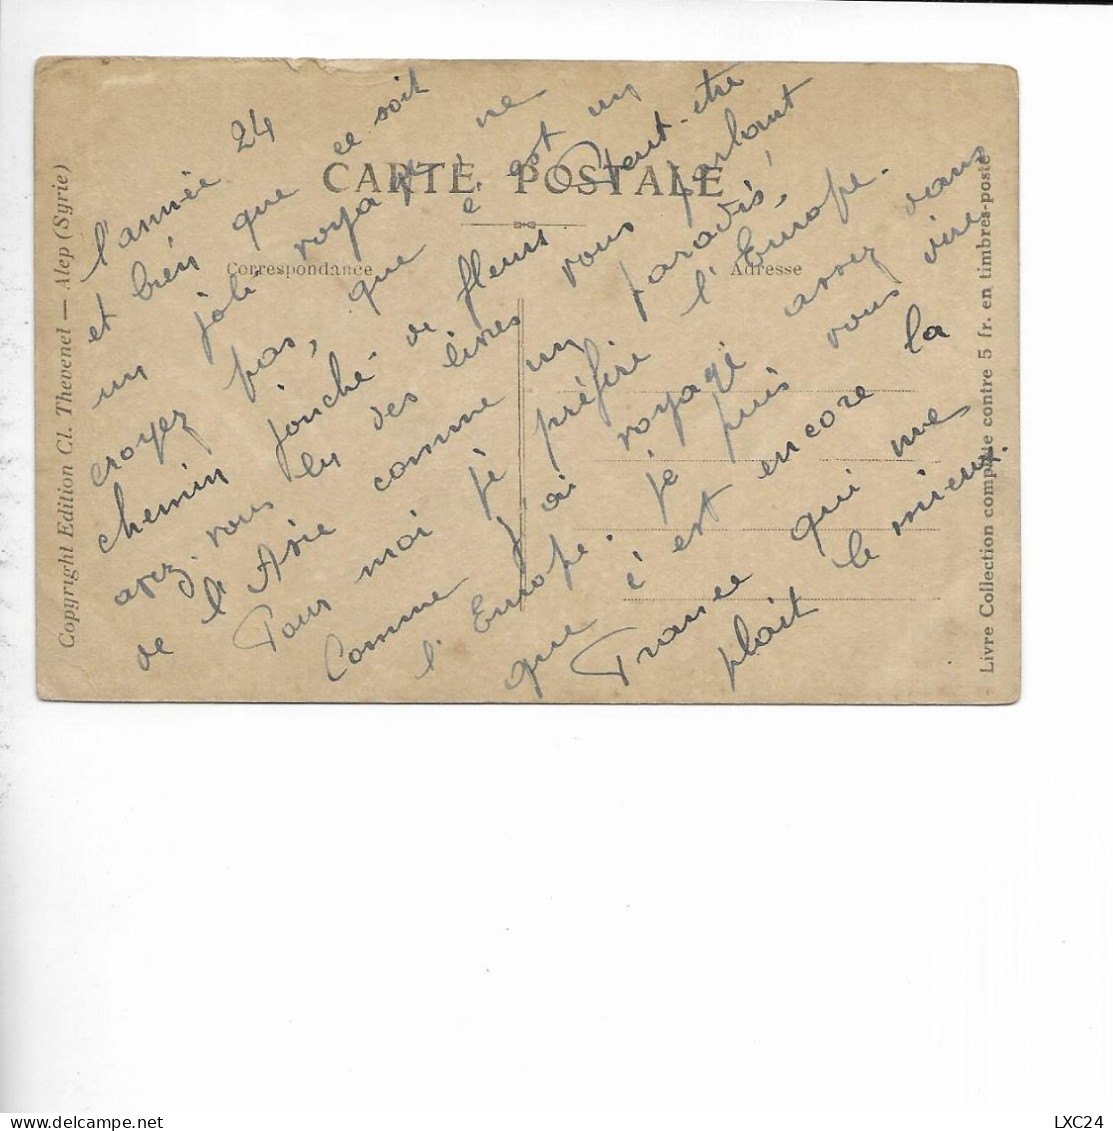 CARTE POSTALE
Correspondance
Adresse
Copyright Edition Cl. Thevenel — Alep (Syrie)
Livre Collection complète contre 5 fr. en timbres-poste
l'année 24
et bien que ce soit
un joli voyage, ne
croyez pas, que c'est un
chemin jonché de fleurs Peut-être
avez-vous lu des livres vous parlant
de l'Asie comme un paradis,
Pour moi je préfère l'Europe.
Comme j'ai voyagé assez dans
l'Europe. je puis vous dire
que c'est encore la
France qui me
plait le mieux.
LXC24